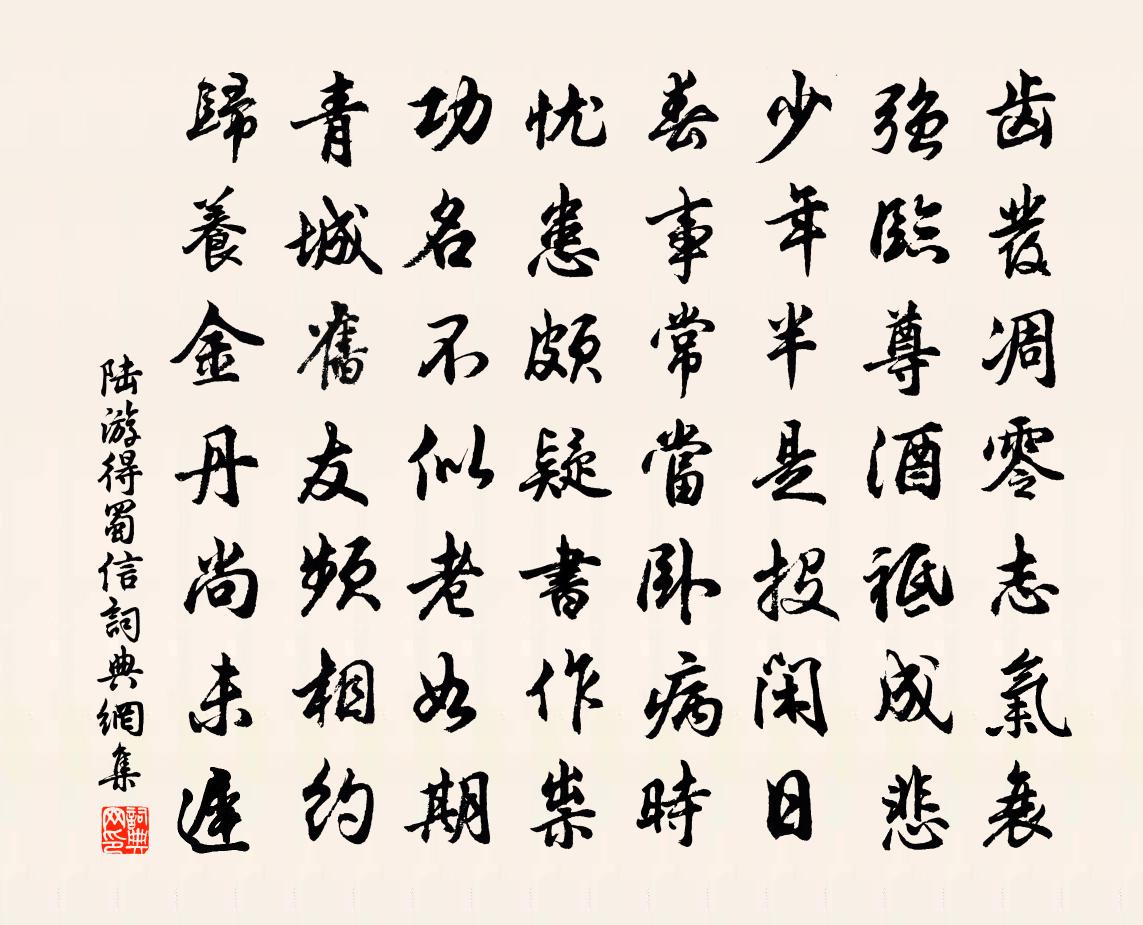 齿發凋零志氣衰
强臨尊酒祗成悲
少年半是投閑日
春事常當卧病時
忧患頗疑書作祟
功名不似老如期
青城舊友頻相約
歸養金丹尚未遲
陆游得蜀信詞典網集
詞典网印